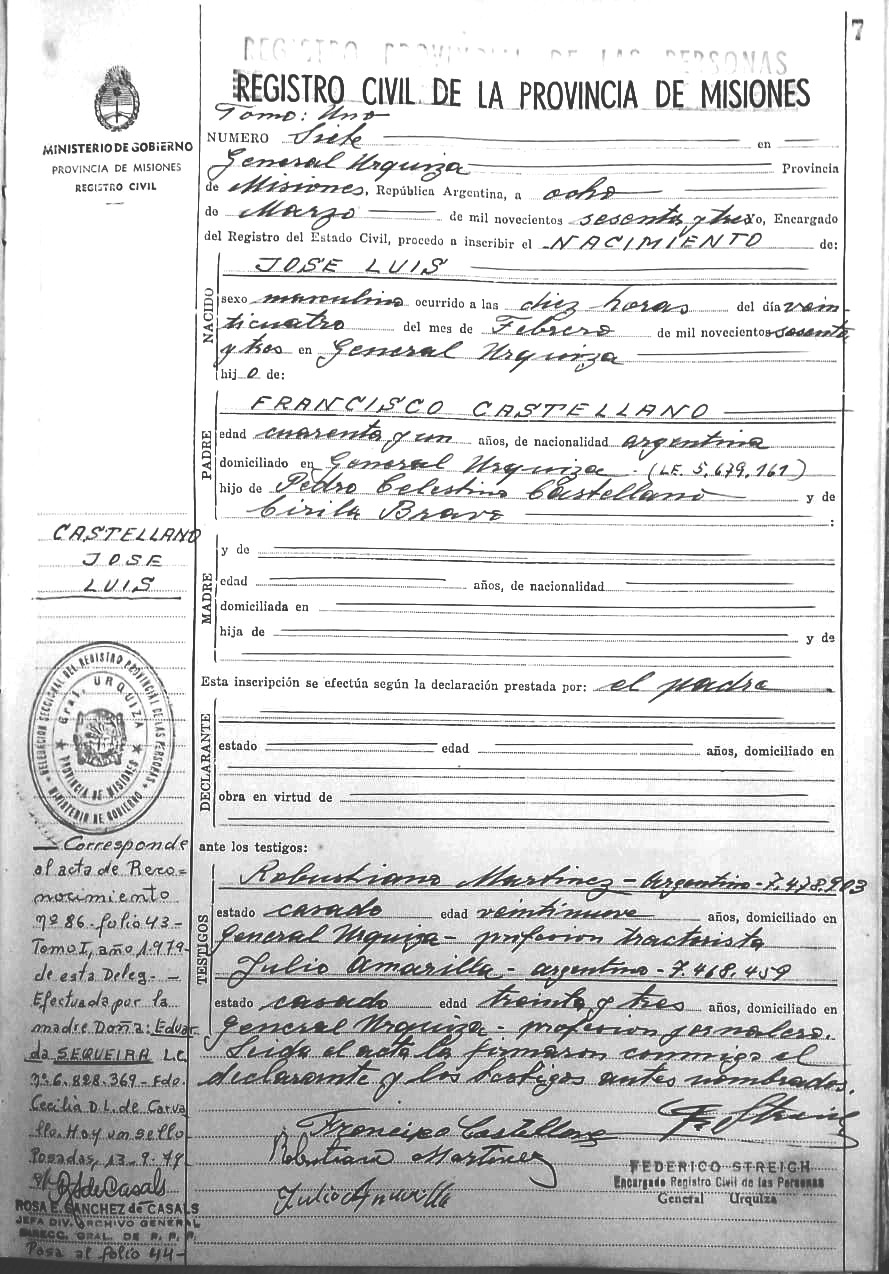 7
REGISTRO PROVINCIAL DE LAS PERSONAS
REGISTRO CIVIL DE LA PROVINCIA DE MISIONES
Tomo: Uno
MINISTERIO DE GOBIERNO
PROVINCIA DE MISIONES
REGISTRO CIVIL
NUMERO Siete en
General Urquiza Provincia
de Misiones, República Argentina, a ocho
de Marzo de mil novecientos sesenta y tres yo, Encargado
del Registro del Estado Civil, procedo a inscribir el NACIMIENTO de:
NACIDO
JOSE LUIS
sexo masculino ocurrido a las diez horas del día vein-
ticuatro del mes de Febrero de mil novecientos sesenta
y tres en General Urquiza
hijo de:
PADRE
FRANCISCO CASTELLANO
edad cuarenta y un años, de nacionalidad argentina
domiciliado en General Urquiza - (LE. 5.679.161)
hijo de Pedro Celestino Castellano y de
Cirila Brave :
CASTELLANO
JOSE
LUIS
MADRE
y de
edad años, de nacionalidad
domiciliada en
hija de y de
Esta inscripción se efectúa según la declaración prestada por: el padre
DELEGACION SECCIONAL DEL REGISTRO PROVINCIAL DE LAS PERSONAS
Gral. URQUIZA
PROVINCIA DE MISIONES
MINISTERIO DE GOBIERNO
DECLARANTE
estado edad años, domiciliado en
obra en virtud de
ante los testigos:
TESTIGOS
Robustiano Martinez - Argentino - 7.478.903
estado casado edad veintinueve años, domiciliado en
General Urquiza - profesion tractorista
Julio Amarilla - argentino - 7.468.459
estado casado edad treinta y tres años, domiciliado en
General Urquiza - profesion jornalero.
Leida el acta la firmaron conmigo el
declarante y los testigos antes nombrados.
Francisco Castellano
Robustiano Martinez
Julio Amarilla
FEDERICO STREICH
Encargado Registro Civil de las Personas
General Urquiza
Corresponde
al acta de Reco-
nocimiento
nº 86 - folio 43 -
Tomo I, año 1.979 -
de esta Deleg. -
Efectuada por la
madre Doña: Eduar
da SEQUEIRA L.C.
nº 6.828.369 - Fdo.
Cecilia D L. de Carva
llo. Hay un sello
Posadas, 13-9-79
RSdeCasals
ROSA E. SANCHEZ de CASALS
JEFA DIV. ARCHIVO GENERAL
DIRECC. GRAL. DE R. P. P.
Pasa al folio 44 -